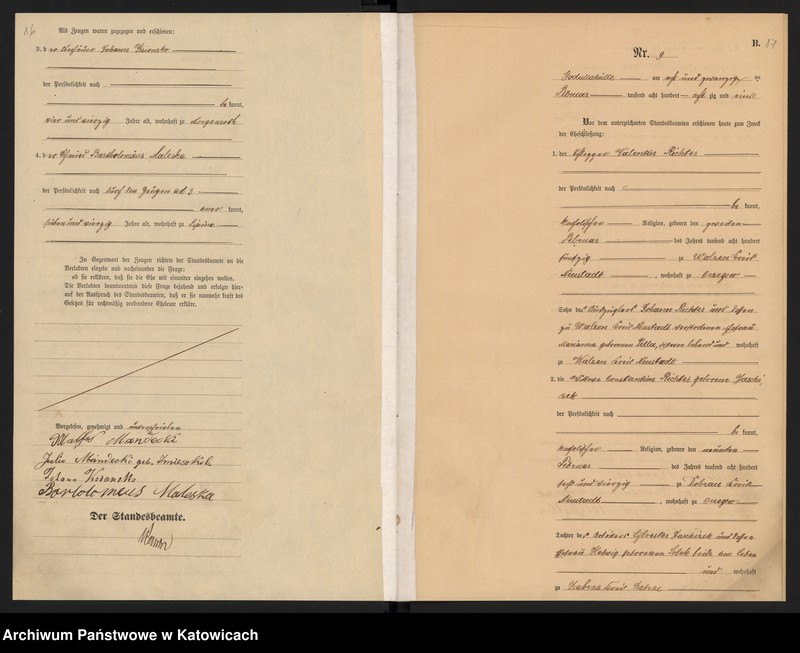 16
Als Zeugen waren zugezogen und erschienen:
3. der Johann
der Persönlichkeit nach
be kannt,
vier und vierzig Jahre alt, wohnhaft zu Morgenroth
4. der Schmied Bartholomäus Maleska
der Persönlichkeit nach durch den Zeugen ad 3
aner kannt,
sieben und vierzig Jahre alt, wohnhaft zu Lipine
In Gegenwart der Zeugen richtete der Standesbeamte an die
Verlobten einzeln und nacheinander die Frage:
ob sie erklären, daß sie die Ehe mit einander eingehen wollen.
Die Verlobten beantworteten diese Frage bejahend und erfolgte hier-
auf der Ausspruch des Standesbeamten, daß er sie nunmehr kraft des
Gesetzes für rechtmäßig verbundene Eheleute erkläre.
Vorgelesen, genehmigt und unterschrieben
Mandecki
Julia Mandecki geb.
Johann
Bartolomeus Maleska
Der Standesbeamte.
B.
Nr. 9
Godullahütte am acht und zwanzig ten
Februar tausend acht hundert acht zig und
Vor dem unterzeichneten Standesbeamten erschienen heute zum Zweck
der Eheschließung:
1. der Valentin Richter
der Persönlichkeit nach
be kannt,
katholischer Religion, geboren den zweiten
Februar des Jahres tausend acht hundert
fünfzig zu Walzen Kreis
Neustadt, wohnhaft zu Orzegow
Sohn des Johann Richter und dessen
zu Walzen Kreis Neustadt verstorbenen Ehefrau
Marianna geborenen wohnhaft
zu Walzen Kreis Neustadt
2. die Wittwe Constantine Richter geborene
der Persönlichkeit nach
be kannt,
katholischer Religion, geboren den neunten
Februar des Jahres tausend acht hundert
sechs und vierzig zu Kreis
Neustadt, wohnhaft zu Orzegow
Tochter des Sylvester und dessen
Ehefrau Hedwig geborenen beide am Leben
und wohnhaft
zu Zabrze Kreis Zabrze
Archiwum Państwowe w Katowicach